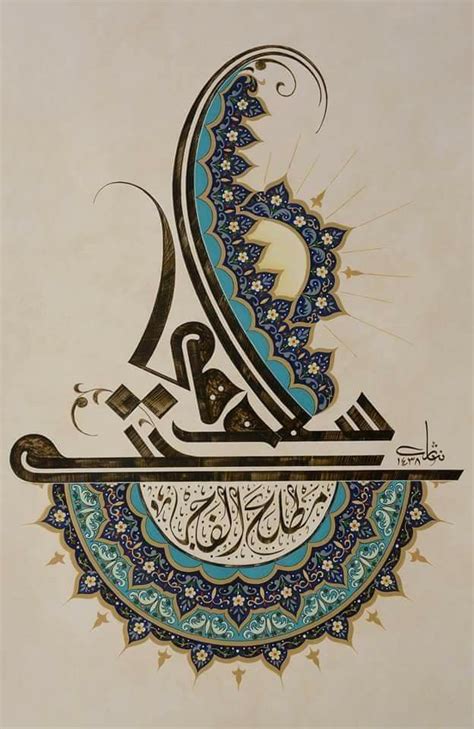 سلام هي حتى
مطلع الفجر
١٤٣٨